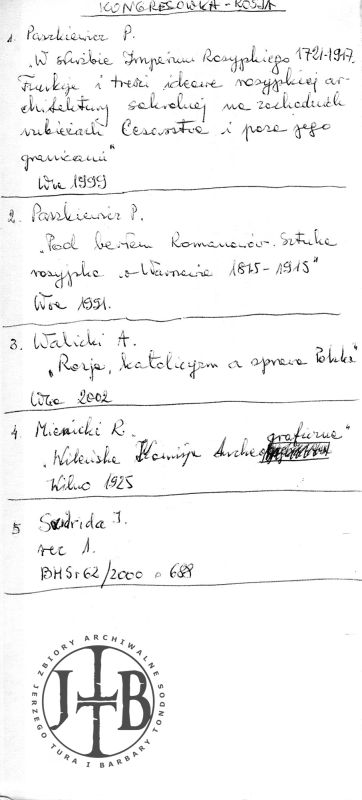 KONGRESÓWKA - ROSJA
1. Paszkiewicz P.
„W służbie Imperium Rosyjskiego 1721-1917.
Funkcje i treści ideowe rosyjskiej ar-
chitektury sakralnej na zachodnich
rubieżach Cesarstwa i poza jego
granicami"
Wa 1999
2. Paszkiewicz P.
„Pod berłem Romanowów. Sztuka
rosyjska w Warszawie 1815-1915"
Wa 1991.
3. Walicki A.
„Rosja, katolicyzm a sprawa Polska"
Wa 2002
4. Mienicki R.
„Wileńska Komisja Archeograficzna"
Wilno 1925
5 J.
rec 1.
BHS 62/2000 688
ZBIORY ARCHIWALNE
JERZEGO TURA I BARBARY TONDOS
JTB